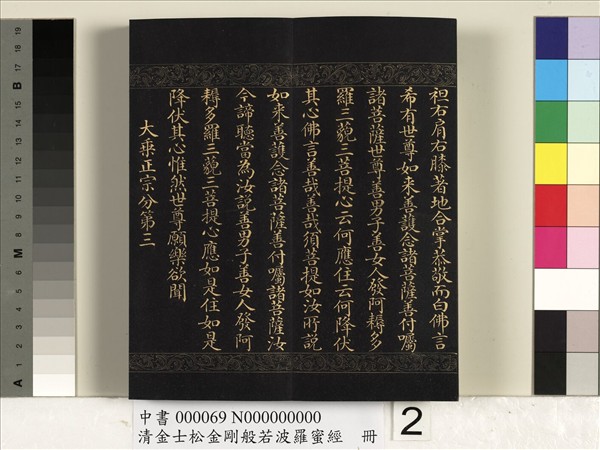 袒右肩右膝著地合掌恭敬而白佛言
希有世尊如来善護念諸菩薩善付囑
諸菩薩世尊善男子善女人發阿耨多
羅三藐三菩提心云何應住云何降伏
其心佛言善哉善哉須菩提如汝所說
如来善護念諸菩薩善付囑諸菩薩汝
今諦聽當為汝說善男子善女人發阿
耨多羅三藐三菩提心應如是住如是
降伏其心惟然世尊願樂欲聞
大乘正宗分第三
中書 000069 N000000000
清金士松金剛般若波羅蜜經 冊
2
A 1 2 3 4 5 6 M 8 9 10 11 12 13 14 15 B 17 18 19